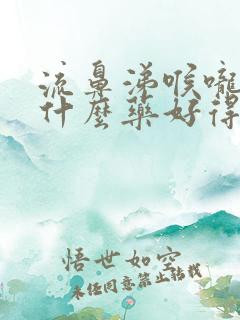 流鼻涕喉嚨
什麼藥好得
悟世如空
未经同意禁止转载